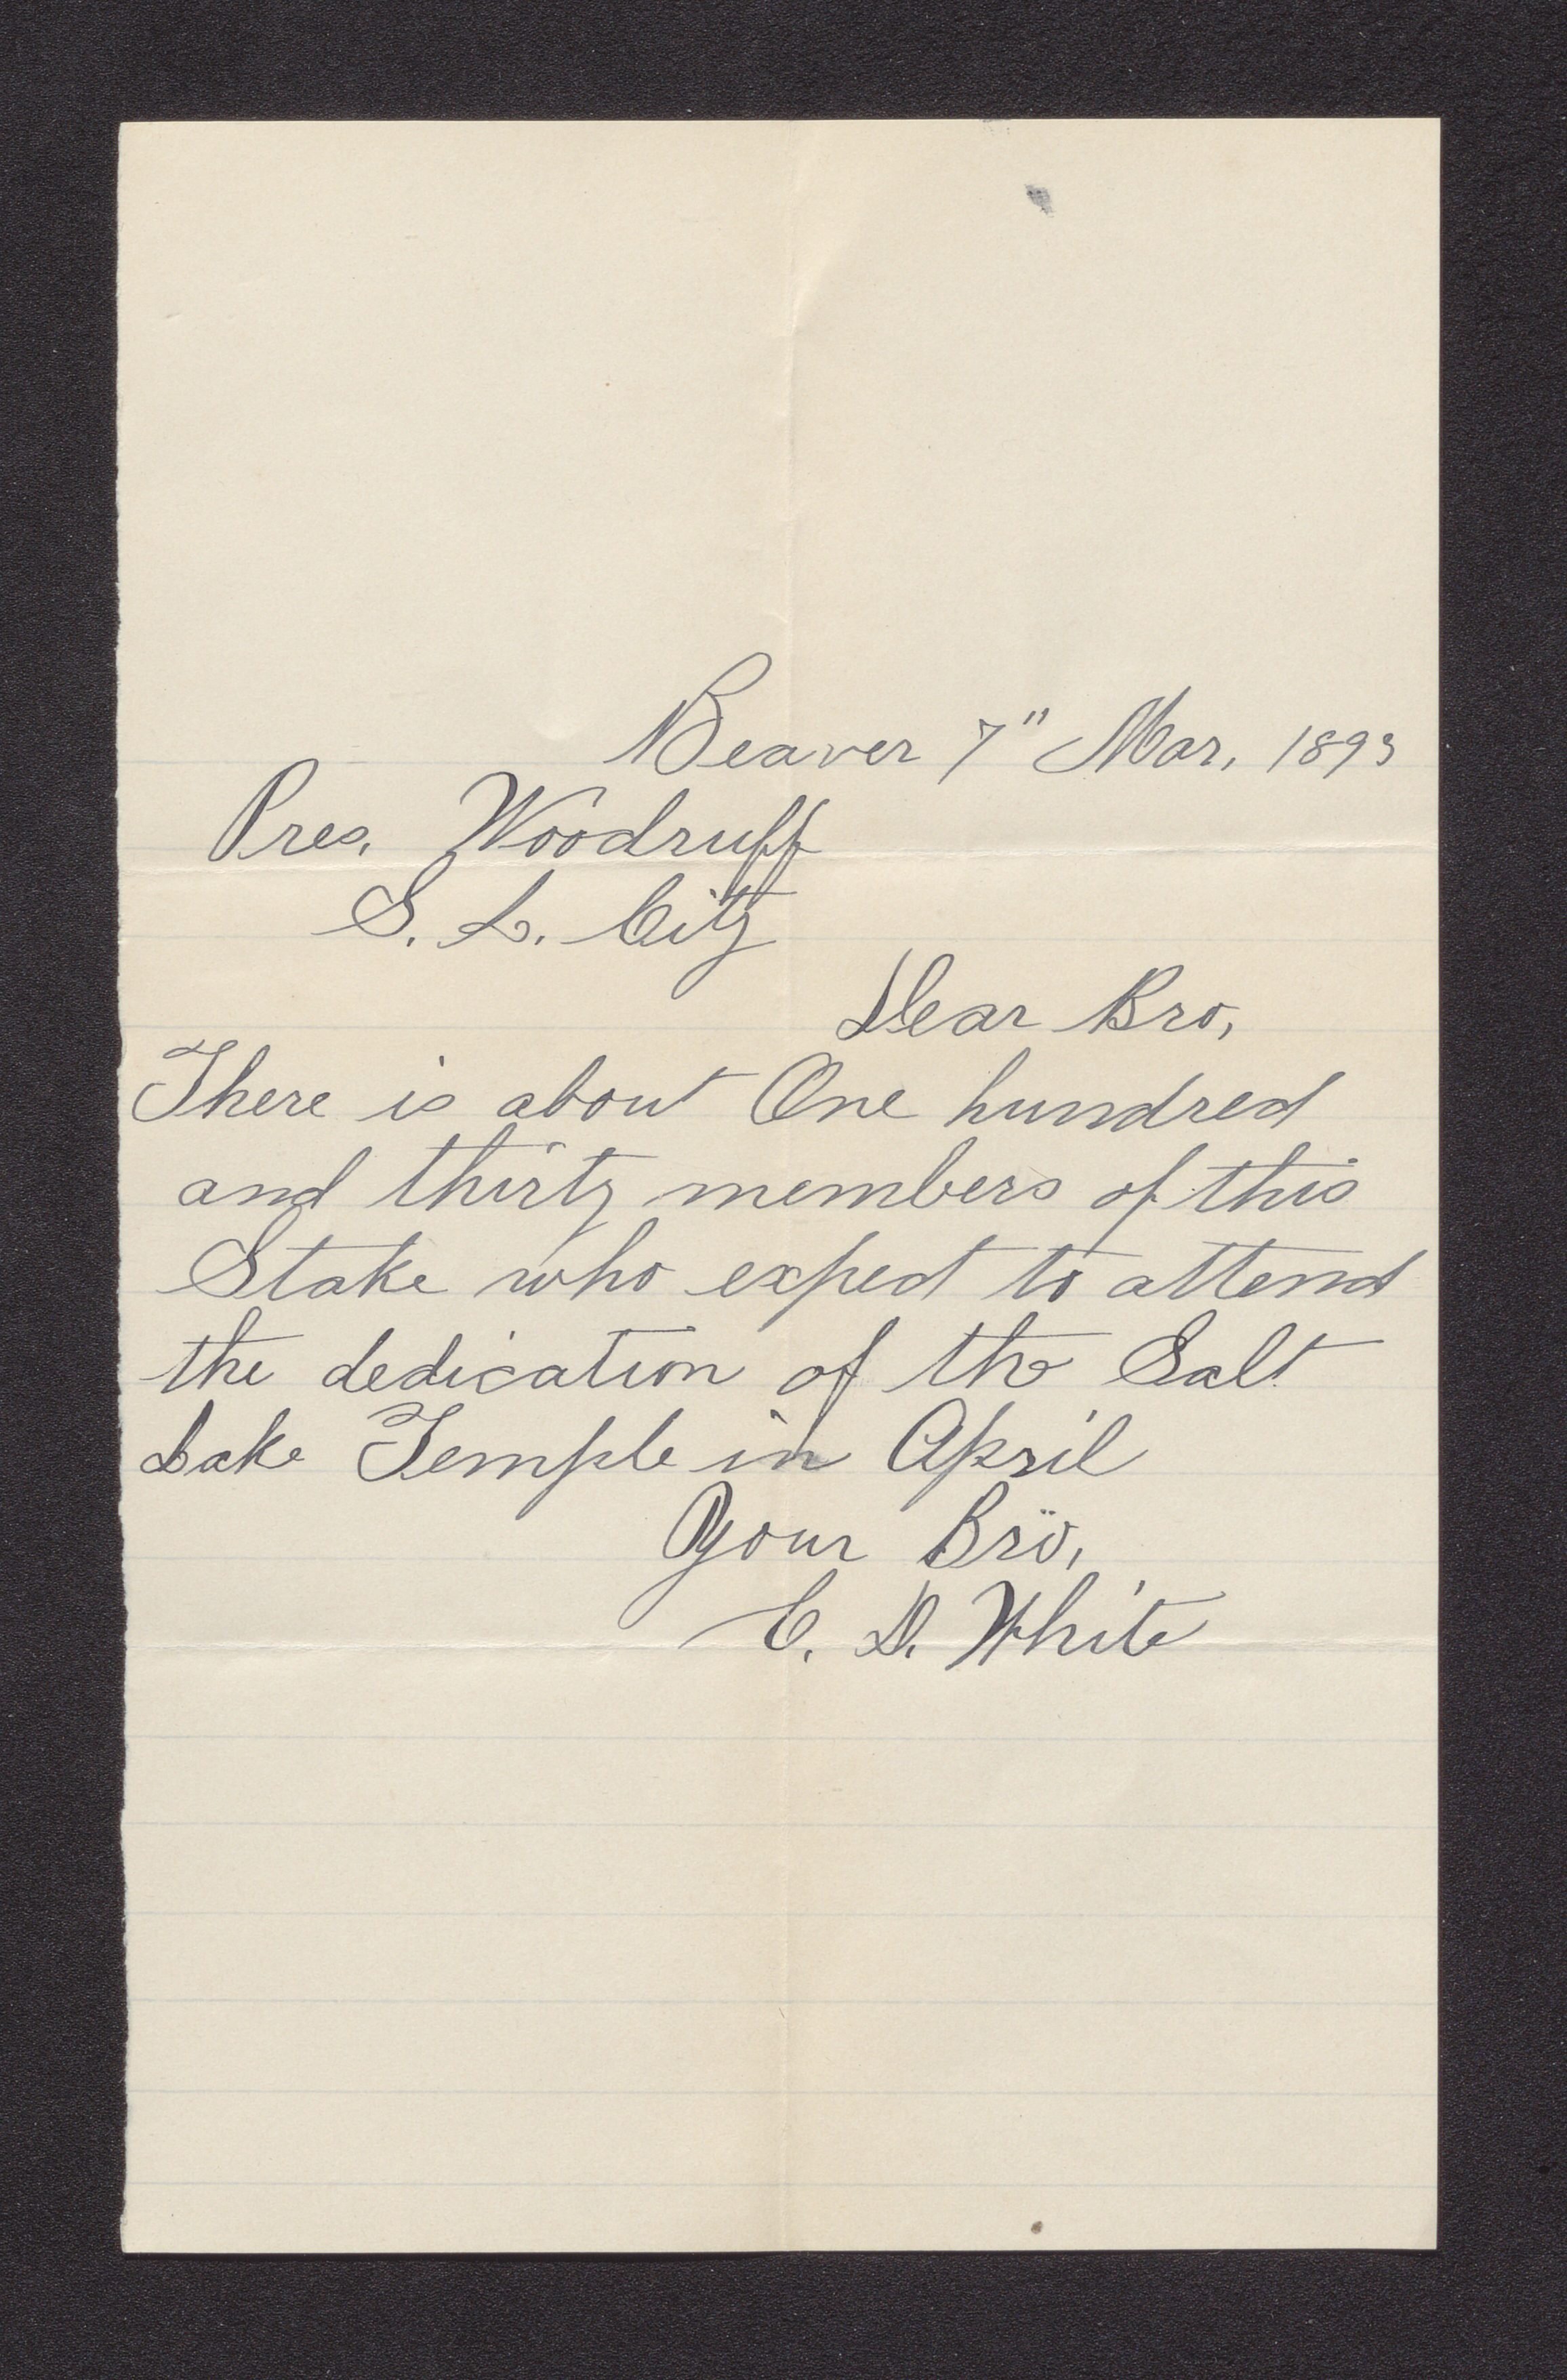 Beaver 7" Mar, 1893
Pres. Woodruff
S. L. City
Dear Bro,
There is about One hundred
and thirty members of this
Stake who expect to attend
the dedication of the Salt
Lake Temple in April
Your Bro,
C. D. White